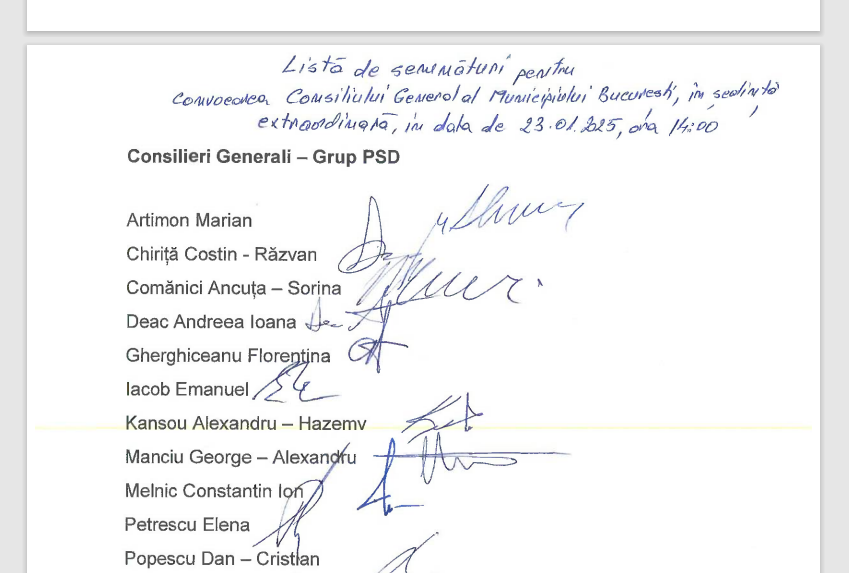 Listă de semnături pentru
convocarea Consiliului General al Municipiului București, în ședință
extraordinară, în data de 23.01.2025, ora 14:00
Consilieri Generali – Grup PSD
Artimon Marian
Chiriță Costin - Răzvan
Comănici Ancuța – Sorina
Deac Andreea Ioana
Gherghiceanu Florentina
Iacob Emanuel
Kansou Alexandru – Hazemv
Manciu George – Alexandru
Melnic Constantin Ion
Petrescu Elena
Popescu Dan – Cristian